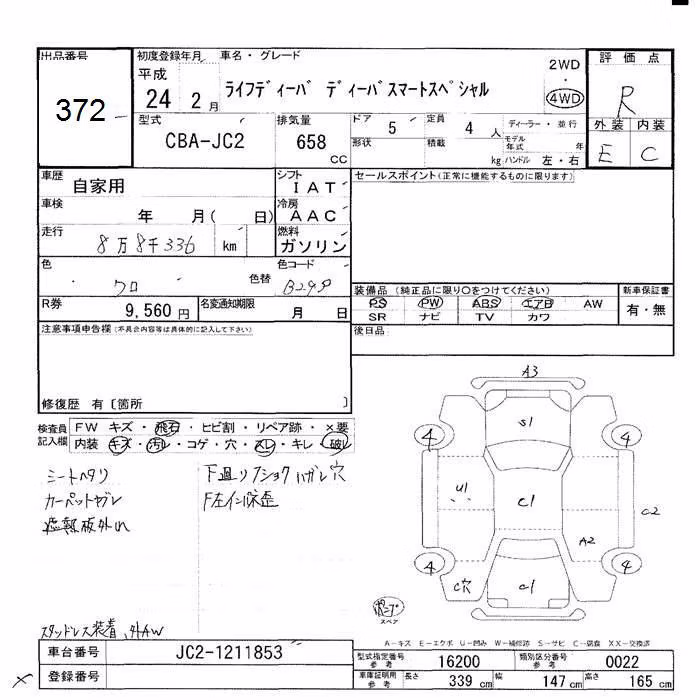 出品番号
372
初度登録年月
平成
24 2月
車名・グレード
ライフディーバ ディーバスマートスペシャル
2WD
・
4WD
評価点
R
外装 内装
E C
型式
CBA-JC2
排気量
658
CC
ドア
5
定員
4 人
ディーラー・並行
形状
積載
kg
モデル年式 年
ハンドル 左・右
車歴
自家用
シフト
IAT
車検
年 月( 日)
冷房
AAC
走行
8万8千336 km
燃料
ガソリン
色
クロ
色替
色コード
B299
R券
9,560 円
名変通知期限
月 日
セールスポイント(正常に機能するものに限ります)
装備品 (純正品に限り〇をつけてください)
PS PW ABS エアB AW
SR ナビ TV カワ
新車保証書
有・無
後日品
注意事項申告欄(不具合内容等は具体的に記入して下さい)
修復歴 有〔箇所 〕
検査員記入欄
FW キズ・飛石・ヒビ割・リペア跡・×要
内装 キズ・汚レ・コゲ・穴・スレ・キレ・破レ
シートヘタリ
カーペットヤブレ
遮熱板外れ
下廻り
ハガレ穴
スタッドレス装着、外AW
A3
S1
4
4
U1
C1
C2
A2
4
4
C穴
C1
スペア
A-キズ E-エクボ U-凹み W-補修跡 S-サビ C-腐食 XX-交換済
車台番号
JC2-1211853
登録番号
型式指定番号
参考
16200
類別区分番号
参考
0022
車庫証明用
参考
長さ
339 cm
幅
147 cm
高さ
165 cm